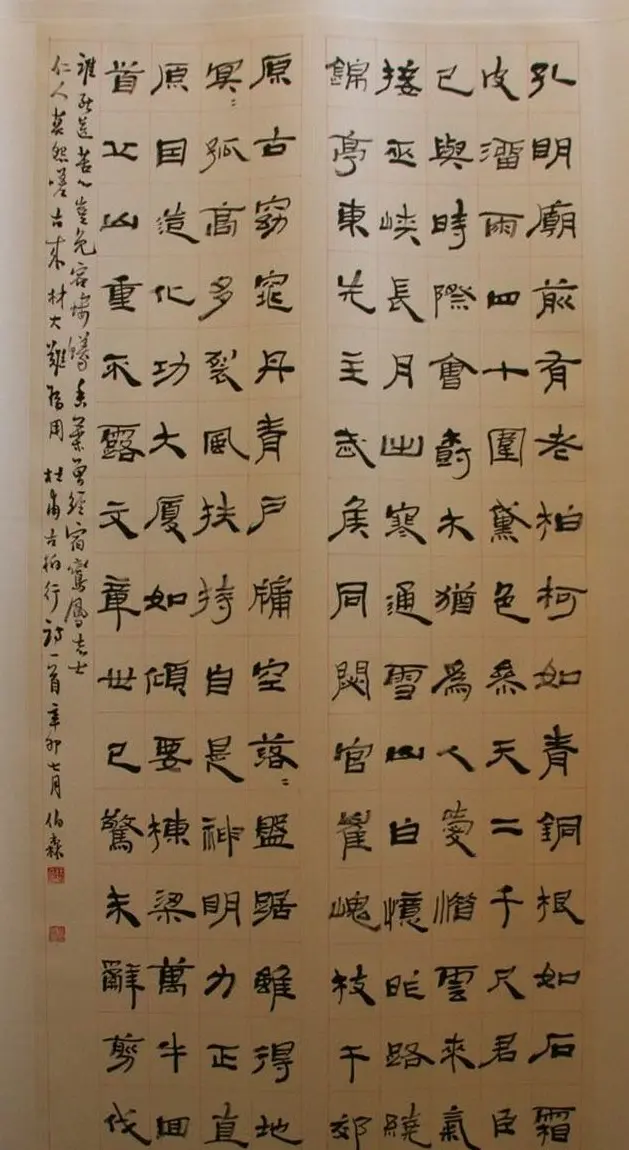 孔明廟前有老柏柯如青銅根如石霜
皮溜雨四十圍黛色參天二千尺君臣
已與時際會樹木猶為人愛惜雲來氣
接巫峽長月出寒通雪山白憶昨路繞
錦亭東先主武侯同閟宮崔嵬枝干郊
原古窈窕丹青戶牖空落〻盤踞雖得地
冥〻孤高多裂風扶持自是神明力正直
原因造化功大厦如傾要棟梁萬牛回
首丘山重不露文章世已驚未辭剪伐
誰能送苦心豈免容螻蟻香葉曾經宿鸞鳳志士
仁人莫怨嗟古來材大難為用 杜甫古柏行詩一首 辛卯七月 伯森